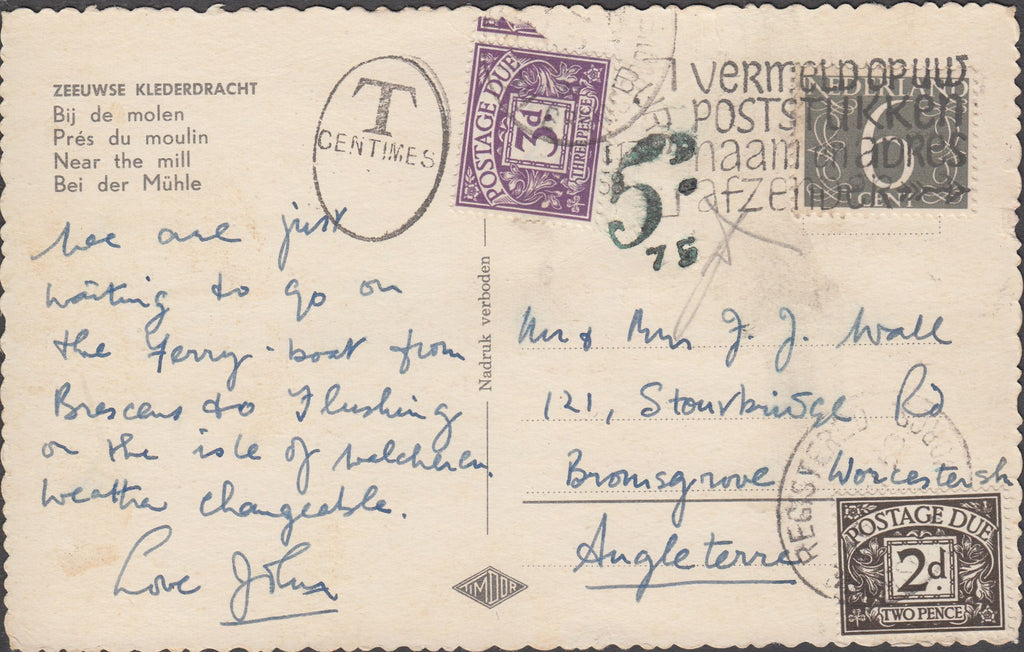 ZEEUWSE KLEDERDRACHT
Bij de molen
Prés du moulin
Near the mill
Bei der Mühle
T
CENTIMES
POSTAGE DUE
3d.
THREE PENCE
5.
75
vermeld op uw
poststukken
naam en adres
afzender
NEDERLAND
6
CENT
We are just
waiting to go on
the ferry-boat from
Brescens to Flushing
on the isle of Walcheren.
Weather changeable.
Love John
Nadruk verboden
Mr & Mrs J. J. Wall
121, Stourbridge Rd
Bromsgrove Worcestersh
Angleterre
REGISTERED
POSTAGE DUE
2d.
TWO PENCE